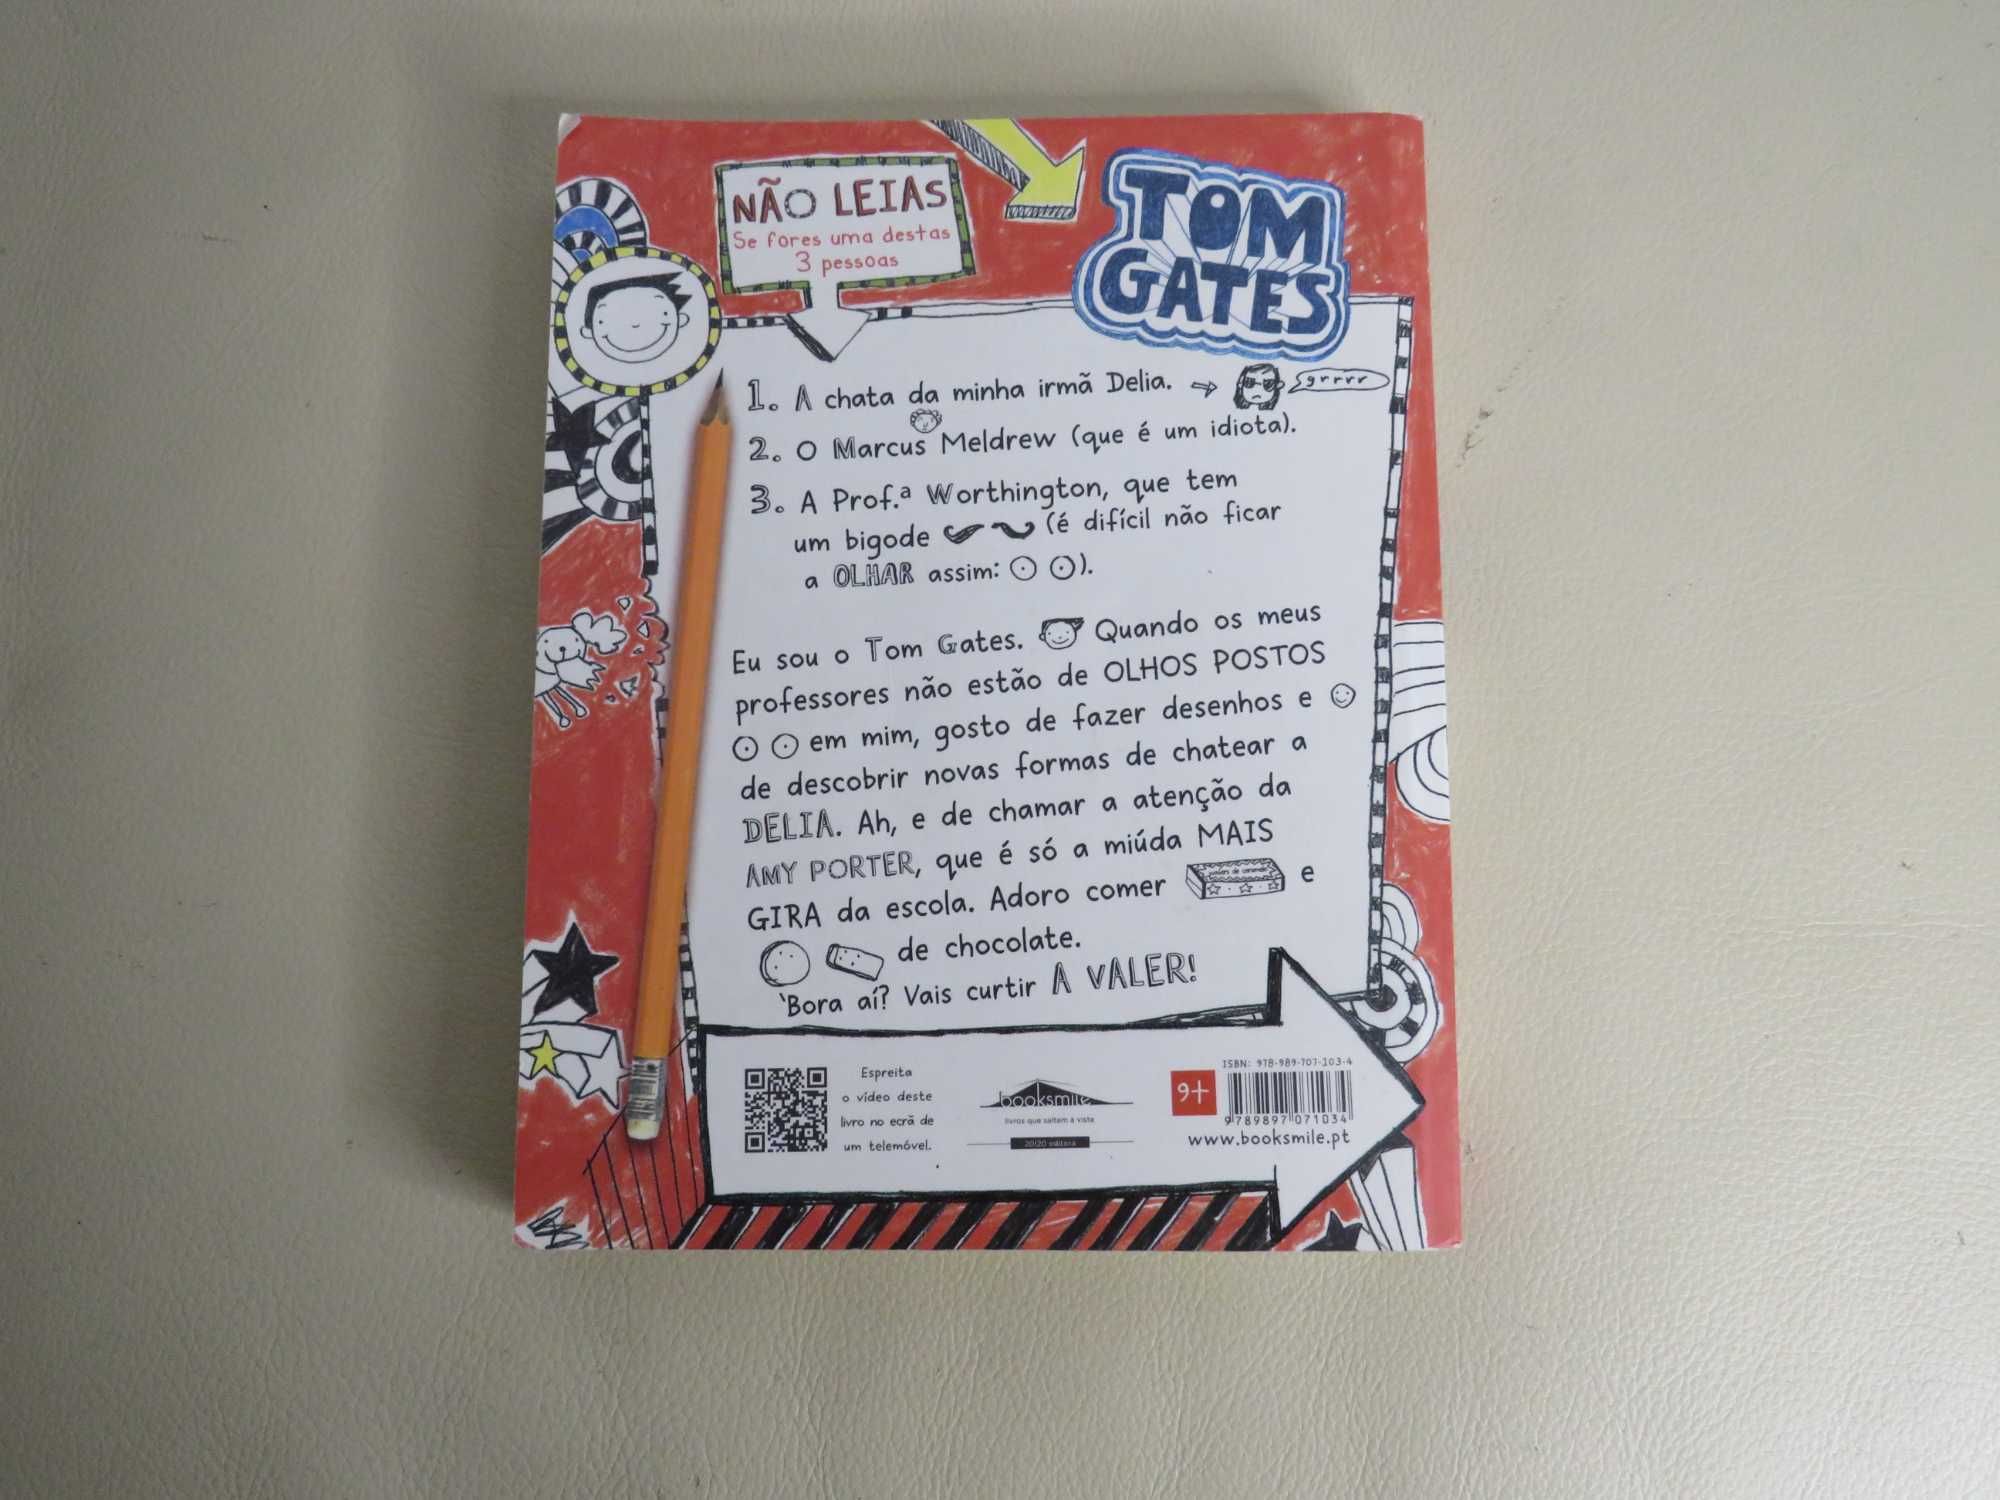 NÃO LEIAS
Se fores uma destas
3 pessoas
TOM
GATES
1. A chata da minha irmã Delia.
grrrr
2. O Marcus Meldrew (que é um idiota).
3. A Prof.ª Worthington, que tem
um bigode (é difícil não ficar
a OLHAR assim: ).
Eu sou o Tom Gates. Quando os meus
professores não estão de OLHOS POSTOS
em mim, gosto de fazer desenhos e
de descobrir novas formas de chatear a
DELIA. Ah, e de chamar a atenção da
AMY PORTER, que é só a miúda MAIS
GIRA da escola. Adoro comer e
de chocolate.
'Bora aí? Vais curtir A VALER!
Espreita
o vídeo deste
livro no ecrã de
um telemóvel.
booksmile
livros que saltam à vista
20|20 editora
9+
ISBN: 978-989-707-103-4
9 789897 071034
www.booksmile.pt